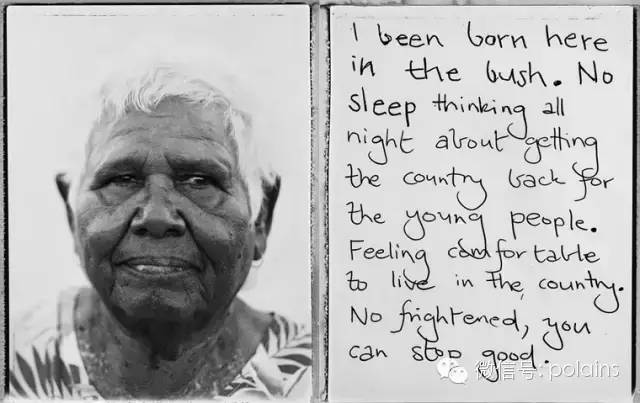 I been born here
in the bush. No
sleep thinking all
night about getting
the country back for
the young people.
Feeling comfortable
to live in the country.
No frightened, you
can stop good.
微信号: polains